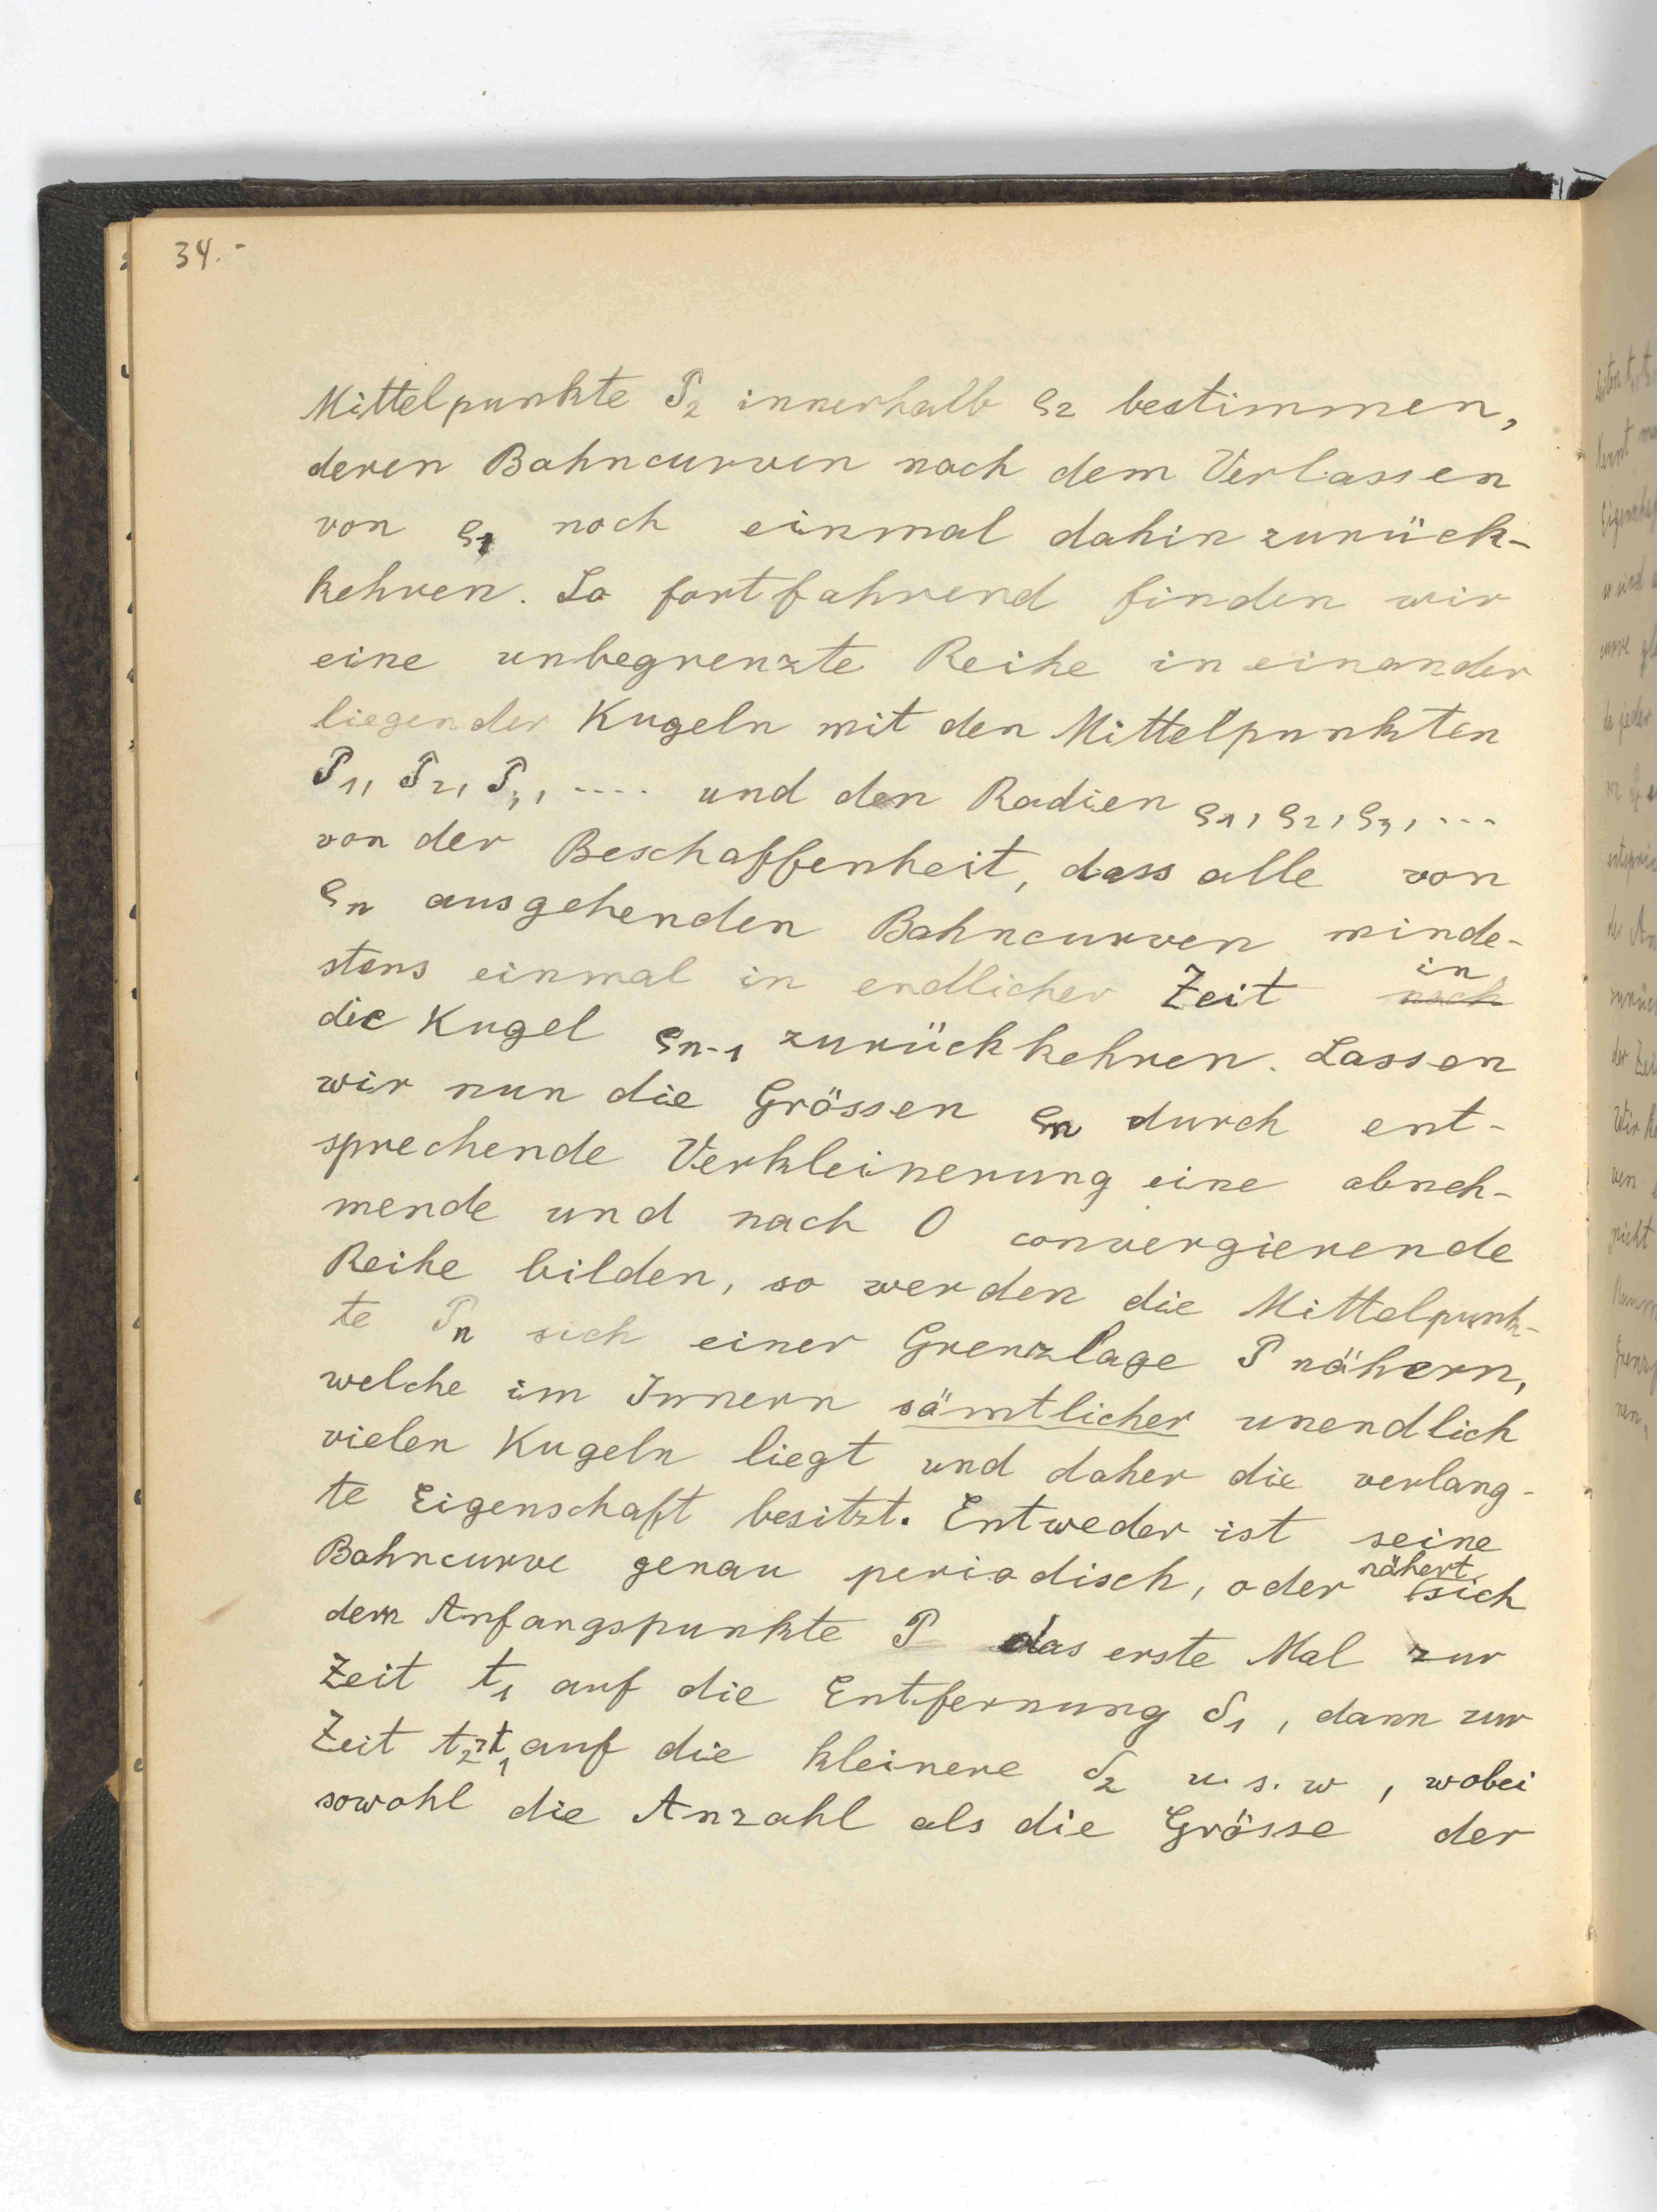 34.-
Mittelpunkte P₂ innerhalb ϱ₂ bestimmen,
deren Bahncurven nach dem Verlassen
von ϱ₁ noch einmal dahin zurück-
kehren. So fortfahrend finden wir
eine unbegrenzte Reihe ineinander
liegender Kugeln mit den Mittelpunkten
P₁, P₂, P₃, .... und den Radien ϱ₁, ϱ₂, ϱ₃, ...
von der Beschaffenheit, dass alle von
ϱₙ ausgehenden Bahncurven minde-
stens einmal in endlicher Zeit in
die Kugel ϱₙ₋₁ zurückkehren. Lassen
wir nun die Grössen ϱₙ durch ent-
sprechende Verkleinerung eine abneh-
mende und nach 0 convergierende
Reihe bilden, so werden die Mittelpunk-
te Pₙ sich einer Grenzlage P nähern,
welche im Innern sämtlicher unendlich
vielen Kugeln liegt und daher die verlang-
te Eigenschaft besitzt. Entweder ist seine
Bahncurve genau periodisch, oder nähert sich
dem Anfangspunkte P das erste Mal zur
Zeit t₁ auf die Entfernung δ₁, dann zur
Zeit t₂>t₁ auf die kleinere δ₂ u. s. w, wobei
sowohl die Anzahl als die Grösse der